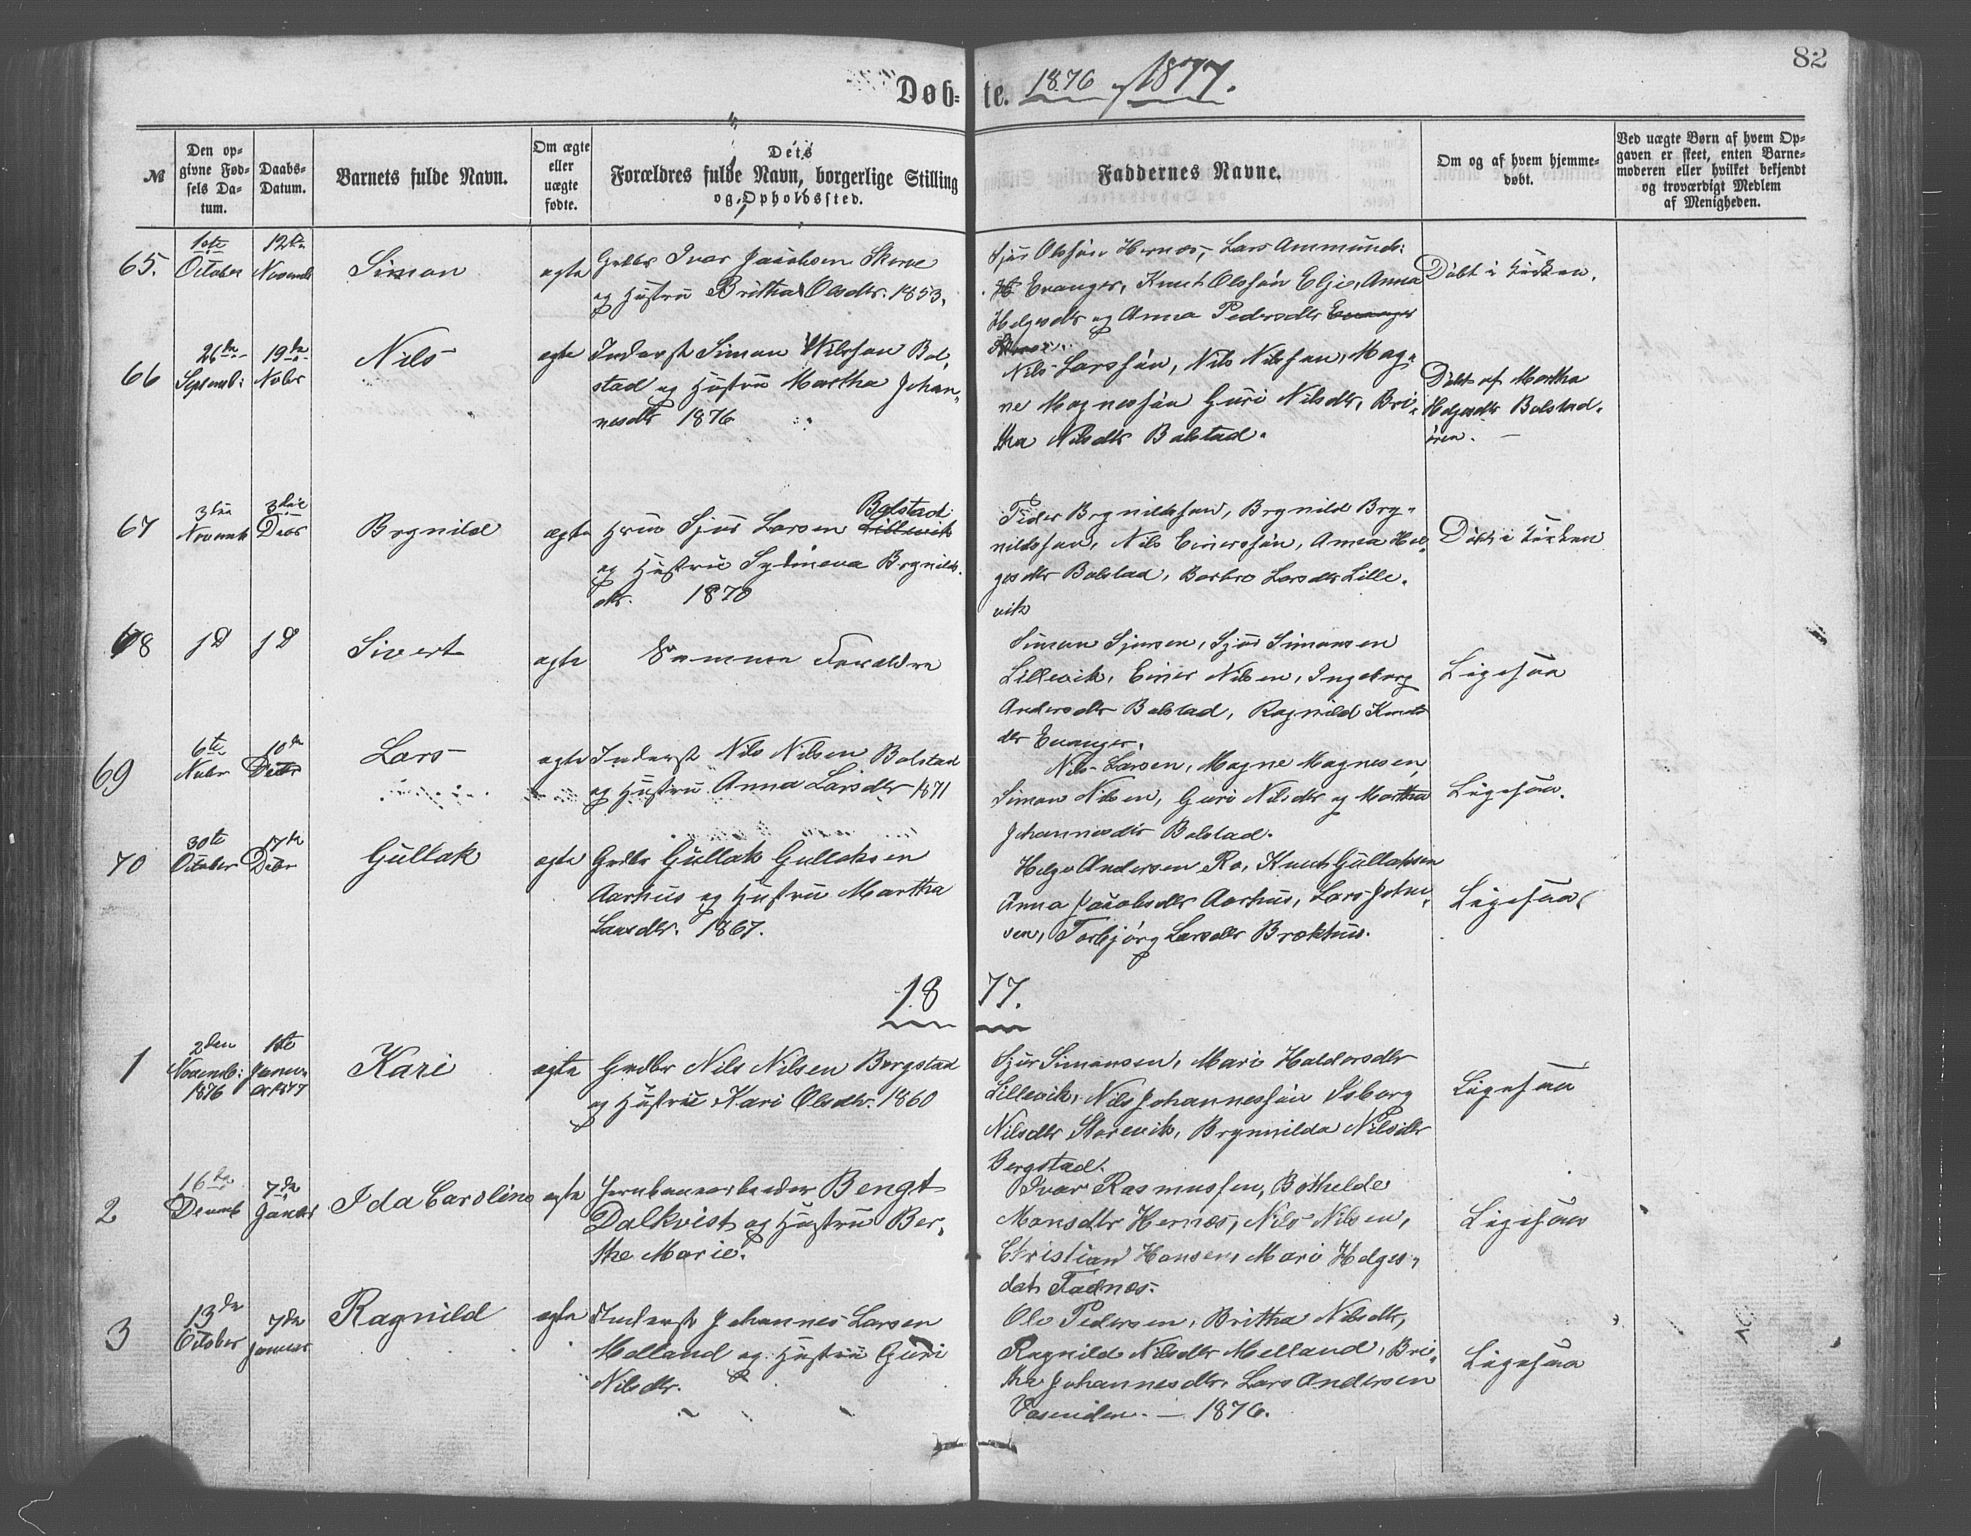 82
Døb=te. 1876 & 1877.
№
Den op-
givne Fød-
sels Da-
tum.
Daabs-
Datum.
Barnets fulde Navn.
Om ægte
eller
uægte
fødte.
Dets
Forældres fulde Navn, borgerlige Stilling
og Opholdssted.
Faddernes Navne.
Om og af hvem hjemme-
døbt.
Ved uægte Børn af hvem Op-
gaven er skeet, enten Barne-
moderen eller hvilket bekjendt
og troværdigt Medlem
af Menigheden.
65.
October
12te
Novemb
Simon
ægte
Grdbr Ivar Jacobsen Skerve
og Hustru Britha Olsdtr. 1853.
Sjur Olssøn Hernæs, Lars Ammunds:
Evanger, Knut Olssøn Elje, Anna
Helgesdtr og Anna Pedersdtr Evanger
Døbt i Kirken.
66
26de
Septemb:
19de
Novbr
Nils
ægte
Inderst Simon Nilssøn Bol,
stad og Hustru Martha Johan,
nesdtr 1876
Nils Larssøn, Nils Nilssøn, Mag,
ne Magnessøn Guri Nilsdtr, Bri,
tha Nilsdtr Bolstad.
Døbt af Martha
Helgesdtr Bolstad,
øren. —
67
3die
Novemb
3die
Decbr
Brynild
ægte
Hmd Sjur Larsen Bolstad
Lillevik
og Hustru Sylineva Brynilds.
dtr. 1870
Peder Brynildssøn, Brynild Bry,
nildssøn, Nils Einerssøn, Anna Hel,
gesdtr Bolstad, Barbro Larsdtr Lille,
vik
Døbt i Kirken
68
1 D
1 D
Sivert
ægte
Samme Forældre
Simon Sjursen, Sjur Simonsen
Lillevik, Einer Nilsen, Ingeborg
Andersdtr Bolstad, Ragnild Knuts
dtr Evanger.
Ligesaa
69
6te
Novbr
10de
Decbr
Lars
ægte
Inderst Nils Nilsen Bolstad
og Hustru Anna Larsdtr 1871
Nils Larsen, Magne Magnesen,
Simon Nilsen, Guri Nilsdtr og Martha
Johannesdtr Bolstad.
Ligesaa.
70
30te
October
17de
Decbr
Gullak
ægte
Grdbr Gullak Gullaksen
Aarhus og Hustru Martha
Larsdtr. 1867.
Helge Andersen Ro, Knut Gullaksen
Anna Jacobsdtr Aarhus, Lars Johan,
sen, Torbjørg Larsdtr Brækhus.
Ligesaa
1877.
1
2den
Novemb:
1876
1ste
Janu,
ar 1877
Kari
ægte
Grdbr Nils Nilsen Bergstad
og Hustru Kari Olsdtr. 1860
Sjur Simonsen, Mari Haldorsdtr
Lillevik, Nils Johannessøn Isborg
Nilsdtr Storevik, Brynnilda Nilsdtr
Bergstad.
Ligesaa
2
16de
Decemb
7de
Januar
Ida Caroline
ægte
Jernbanearbeider Bengt
Dalkvist og Hustru Ber,
the Marie.
Ivar Rasmussen, Bothelde
Monsdtr Hernæs, Nils Nilsen,
Christian Hansen, Mari Helges,
dtr Fadnæs.
Ligesaa
3
13de
October
7de
Januar
Ragnild
ægte
Inderst Johannes Larsen
Melland og Hustru Guri
Nilsdtr.
Ole Pedersen, Britha Nilsdtr,
Ragnild Nilsdtr Melland, Bri,
tha Johannesdtr, Lars Andersen
Vasenden. — 1876.
Ligesaa